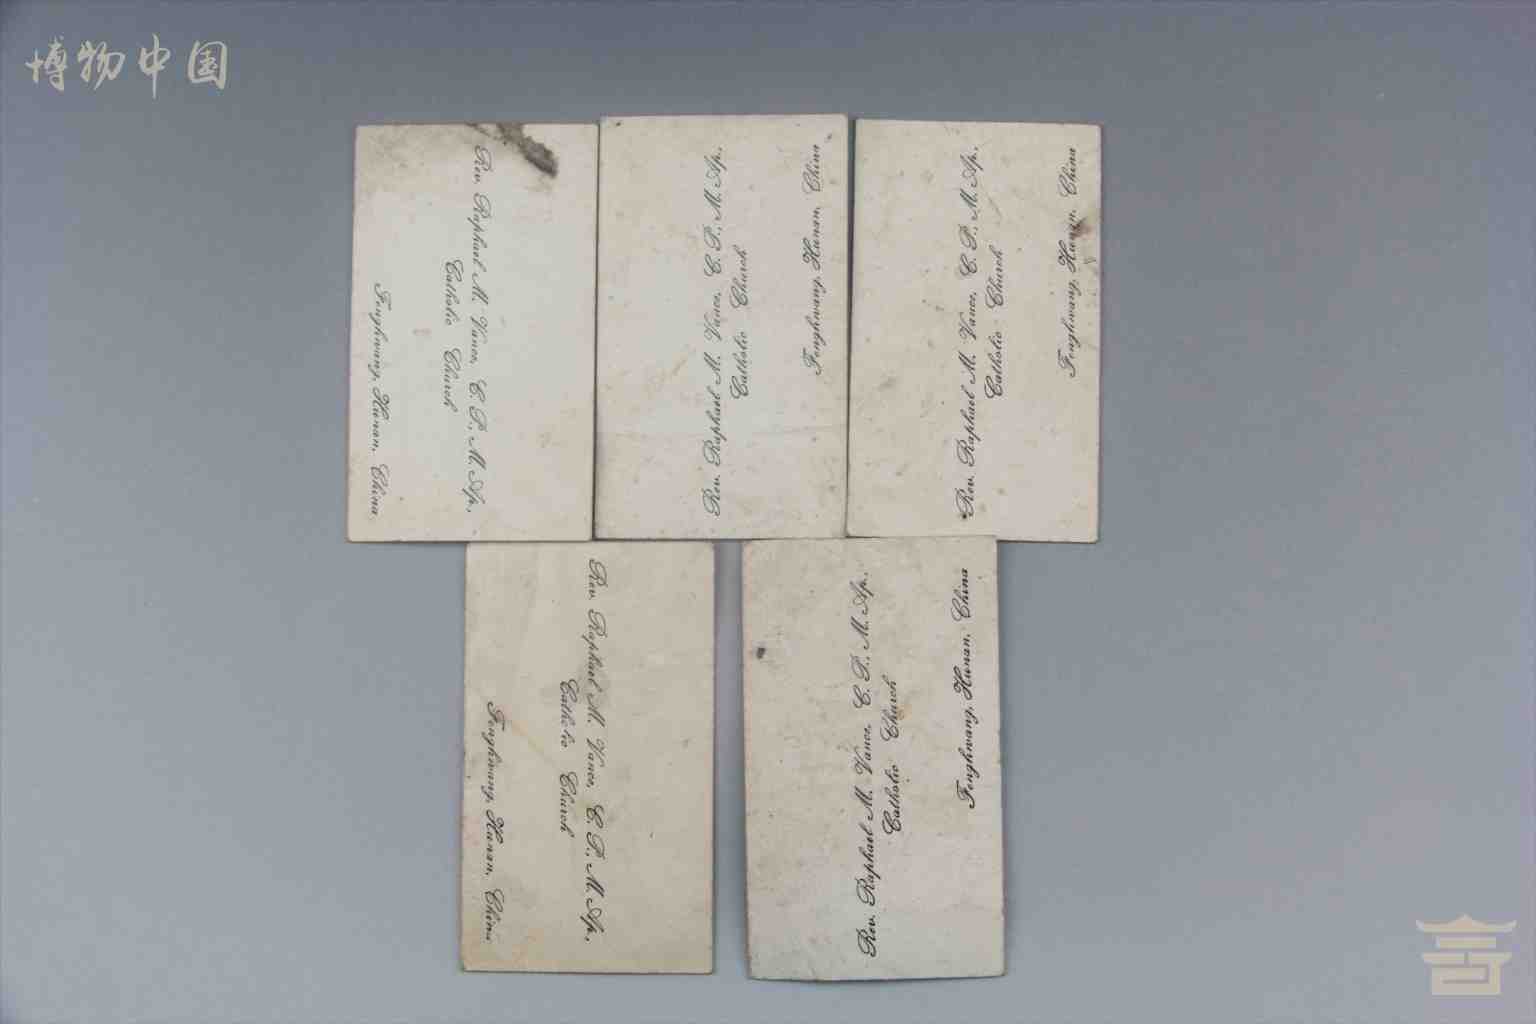 博物中国
Rev. Raphael M. Vance, C. P., M. Ap.,
Catholic Church
Fenghwang, Hunan, China
Rev. Raphael M. Vance, C. P., M. Ap.,
Catholic Church
Fenghwang, Hunan, China
Rev. Raphael M. Vance, C. P., M. Ap.,
Catholic Church
Fenghwang, Hunan, China
Rev. Raphael M. Vance, C. P., M. Ap.,
Catholic Church
Fenghwang, Hunan, China
Rev. Raphael M. Vance, C. P., M. Ap.,
Catholic Church
Fenghwang, Hunan, China